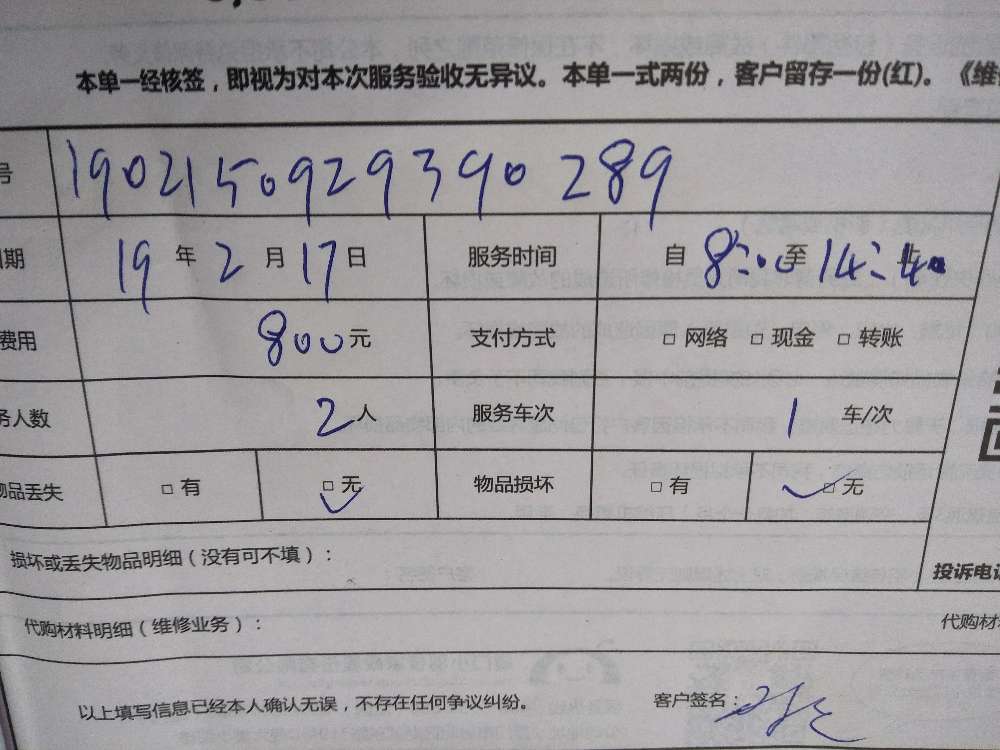 本单一经核签，即视为对本次服务验收无异议。本单一式两份，客户留存一份(红)。《维
号 190215092939390289
日期 19年2月17日 服务时间 自8:00至14:40
费用 800元 支付方式 □ 网络 □ 现金 □ 转账
务人数 2人 服务车次 1 车/次
物品丢失 □ 有 □ 无 物品损坏 □ 有 □ 无
损坏或丢失物品明细（没有可不填）：
投诉电话
代购材料明细（维修业务）： 代购材
以上填写信息已经本人确认无误，不存在任何争议纠纷。 客户签名：